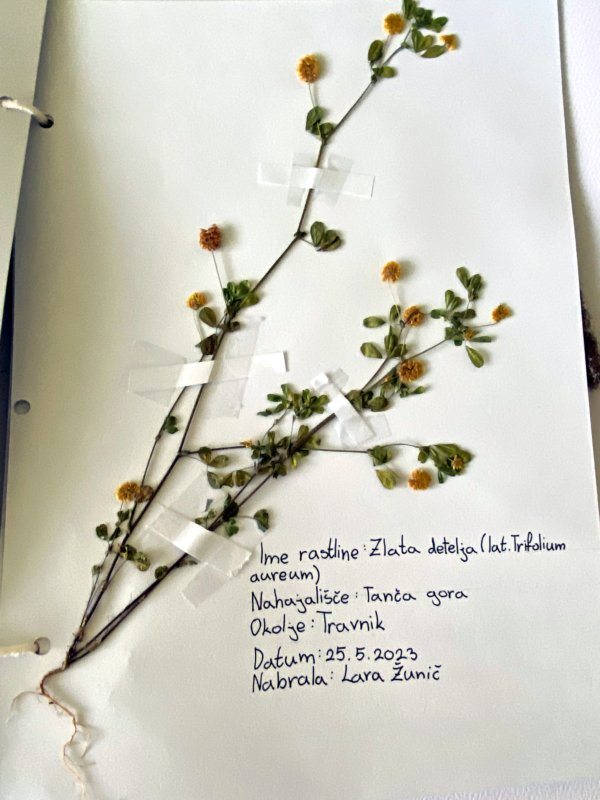 Ime rastline: Zlata detelja (lat. Trifolium
aureum)
Nahajališče: Tanča gora
Okolje: Travnik
Datum: 25.5.2023
Nabrala: Lara Žunič